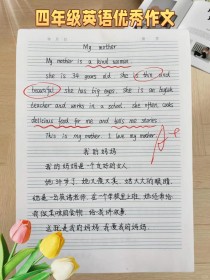 四年级英语优秀作文
My mother
My mother is a kind woman.
she is 34 years old. She is thin and
beautiful. she has big eyes. She is an English
teacher and works in a school. she often cooks
delicious food for me and tells me stories.
This is my mother. I love my mother.
A+
我的妈妈
我的妈妈是一个友好的女人。
她34岁了。她又瘦又美。她大大的眼睛。
她是一名英语老师，在一个学校里上班。她经常给
我做美味的食物，给我讲故事
这就是我的妈妈，我爱我的妈妈。